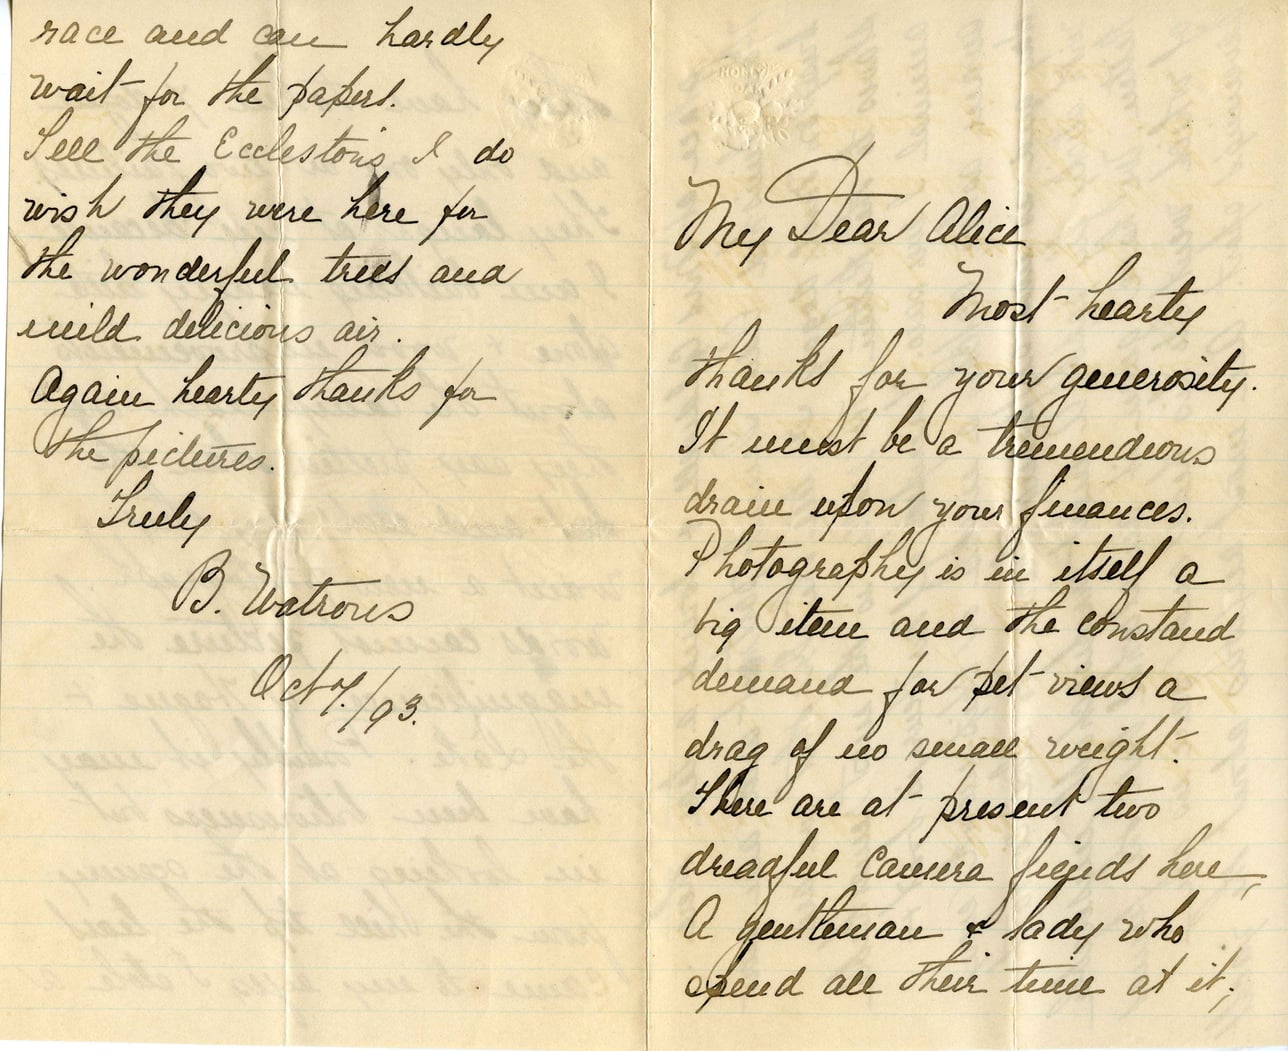 My Dear Alice
Most hearty
thanks for your generosity.
It must be a tremendious
drain upon your finances.
Photography is in itself a
big item and the constand
demand for pet views a
drag of no small weight.
There are at present two
dreadful Camera fiends here,
A gentleman & lady who
spend all their time at it;
race and can hardly
wait for the papers.
Tell the Ecclestons I do
wish they were here for
the wonderful trees and
mild delicious air.
Again hearty thanks for
the pictures.
Truly
B. Watrous
Oct 7./93.